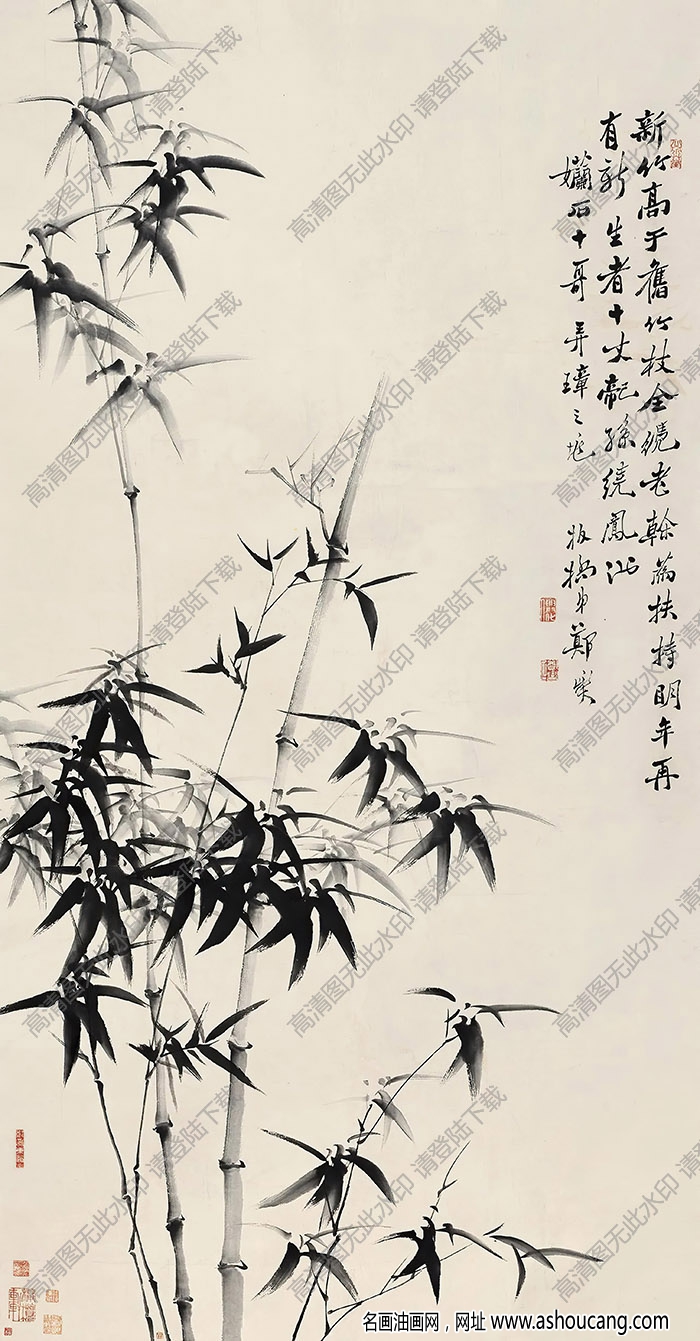 新竹高于舊竹枝全凴老榦為扶持明年再
有新生者十丈龍孫繞鳳池
嬾石十哥弄璋之兆 板橋弟鄭燮
高清图无此水印 请登陆下载
名画油画网，网址 www.ashoucang.com